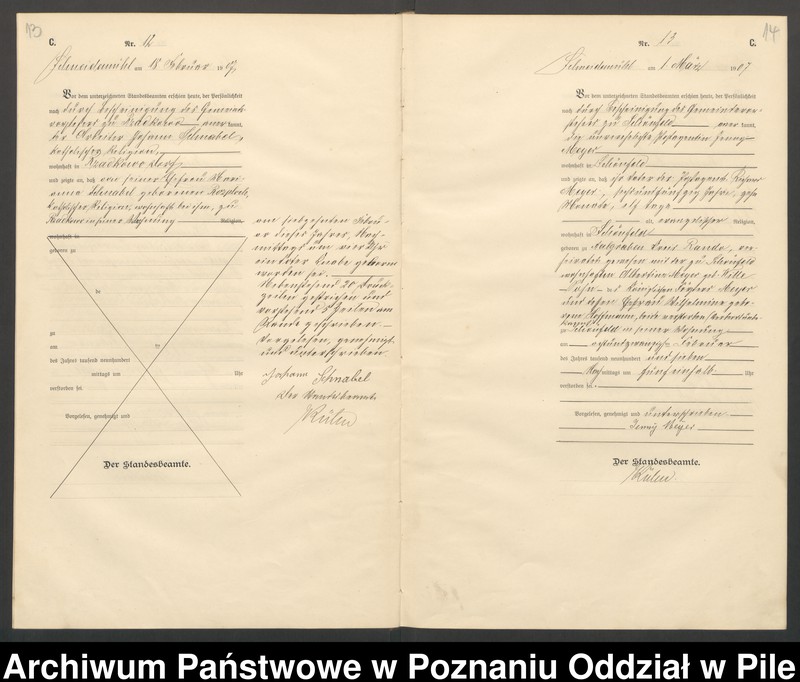 13
C.
Nr. 12
Schneidemühl am 18 Februar 1907.
Vor dem unterzeichneten Standesbeamten erschien heute, der Persönlichkeit
nach durch Bescheinigung des Gemeinde
vorstehers zu anerkannt,
der Arbeiter Johann Schnabel,
katholischer Religion,
wohnhaft in Dorf,
und zeigte an, daß von seiner Ehefrau Mari
anna Schnabel geborenen
katholischer Religion, wohnhaft bei ihm, zu
in seiner Wohnung Religion,
wohnhaft in
geboren zu
in
zu
am ten
des Jahres tausend neunhundert
mittags um Uhr
verstorben sei
Vorgelesen, genehmigt und
Der Standesbeamte.
am siebzehnten Febru
ar dieses Jahres, Nach-
mittags um vier Uhr
ein toter Knabe geboren
worden sei.
Nebenstehend 20 Druck
zeilen gestrichen und
vorstehend Zeilen am
Rande geschrieben.
Vorgelesen, genehmigt
und unterschrieben
Johann Schnabel
Der Standesbeamte
14
C.
Nr. 13
Schneidemühl am 1 März 1907
Vor dem unterzeichneten Standesbeamten erschien heute, der Persönlichkeit
nach durch Bescheinigung des Gemeindevor
stehers zu Schönfeld anerkannt,
die unverehelichte Postagentin Jenny
Meyer
wohnhaft in Schönfeld
und zeigte an, daß ihr Vater der Postagent
Meyer, Jahre, zehn
Monate, elf Tage
alt, evangelischer Religion,
wohnhaft in Schönfeld
geboren zu Kreis ver
heiratet gewesen mit der zu Schönfeld
wohnhaften Albertine Meyer geb. Wille
Sohn des Königlichen Försters Meyer
und dessen Ehefrau Wilhelmine gebo
rene Hoffmann, beide verstorben
zu Schönfeld in seiner Wohnung
am achtundzwanzigsten Februar
des Jahres tausend neunhundert und sieben
Nachmittags um fünf einhalb Uhr
verstorben sei.
Vorgelesen, genehmigt und unterschrieben
Jenny Meyer
Der Standesbeamte.
Archiwum Państwowe w Poznaniu Oddział w Pile